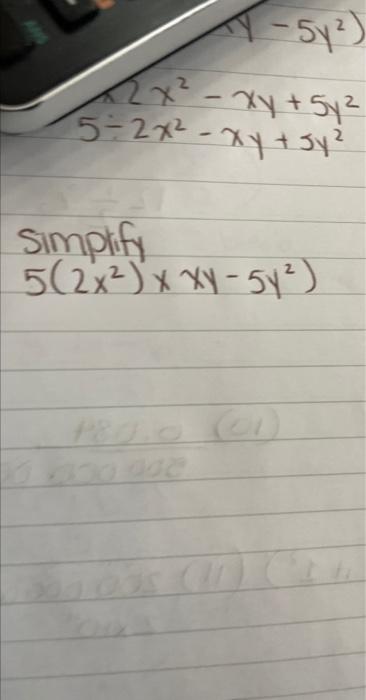 xy - 5y²)
2x² - xy + 5y²
5 ÷ 2x² - xy + 5y²
Simplify
5(2x²) x xy - 5y²)